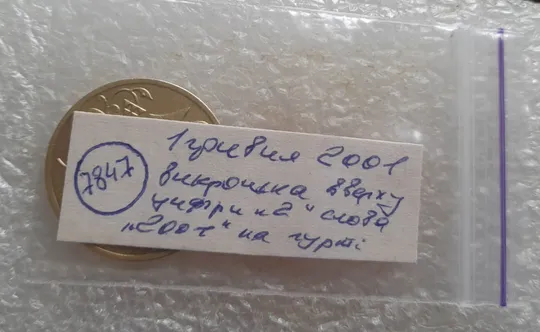 7847
1 гривня 2001
викришка вверху
цифри "2" слова
"2001" на гурті